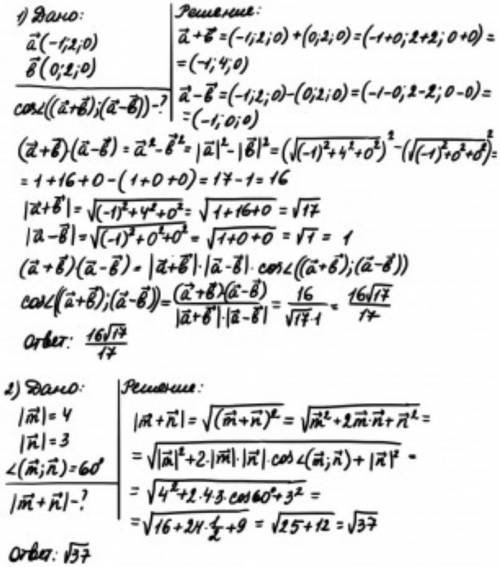 1) Дано:
a⃗(-1;2;0)
b⃗(0;2;0)
cos∠((a⃗+b⃗);(a⃗-b⃗))-?
Решение:
a⃗+b⃗=(-1;2;0)+(0;2;0)=(-1+0;2+2;0+0)=
=(-1;4;0)
a⃗-b⃗=(-1;2;0)-(0;2;0)=(-1-0;2-2;0-0)=
=(-1;0;0)
(a⃗+b⃗)·(a⃗-b⃗)=a⃗²-b⃗²=|a⃗|²-|b⃗|²=(√((-1)²+4²+0²))²-(√((-1)²+0²+0²))²=
=1+16+0-(1+0+0)=17-1=16
|a⃗+b⃗|=√((-1)²+4²+0²)=√(1+16+0)=√17
|a⃗-b⃗|=√((-1)²+0²+0²)=√(1+0+0)=√1=1
(a⃗+b⃗)(a⃗-b⃗)=|a⃗+b⃗|·|a⃗-b⃗|·cos∠((a⃗+b⃗);(a⃗-b⃗))
cos∠((a⃗+b⃗);(a⃗-b⃗))=(a⃗+b⃗)(a⃗-b⃗)/|a⃗+b⃗|·|a⃗-b⃗|=16/√17·1=16√17/17
Ответ: 16√17/17
2) Дано:
|m⃗|=4
|n⃗|=3
∠(m⃗;n⃗)=60°
|m⃗+n⃗|-?
Решение:
|m⃗+n⃗|=√((m⃗+n⃗)²)=√(m⃗²+2m⃗·n⃗+n⃗²)=
=√(|m⃗|²+2·|m⃗|·|n⃗|·cos∠(m⃗;n⃗)+|n⃗|²)=
=√(4²+2·4·3·cos60°+3²)=
=√(16+24·1/2+9)=√(25+12)=√37
Ответ: √37